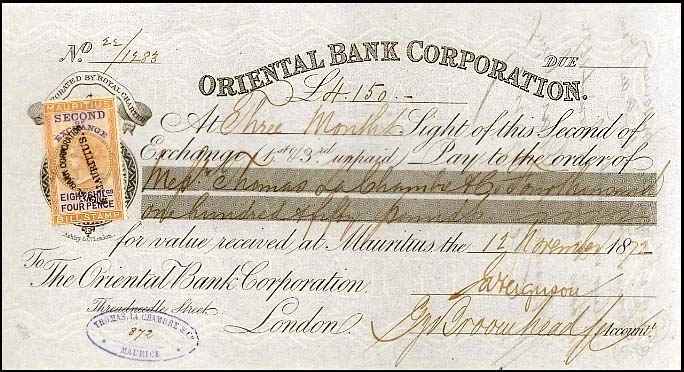 No 22/1283
ORIENTAL BANK CORPORATION.
DUE
£4.150.-
INCORPORATED BY ROYAL CHARTER
At Three Months Sight of this Second of
Exchange 1st & 3rd unpaid Pay to the order of
Messrs Thomas La Chambre & Co Four thousand
one hundred & fifty pounds
for value received at Mauritius the 12 November 1872
To
The Oriental Bank Corporation.
Threadneedle Street
London
J Ferguson
Broomhead
Account.
MAURITIUS
SECOND
EXCHANGE
EIGHT SHILGS
FOUR PENCE
BILL STAMP
BANK CORPORATION
MAURITIUS
Ashby & Co. London.
THOMAS, LA CHAMBRE & Co
872
MAURICE